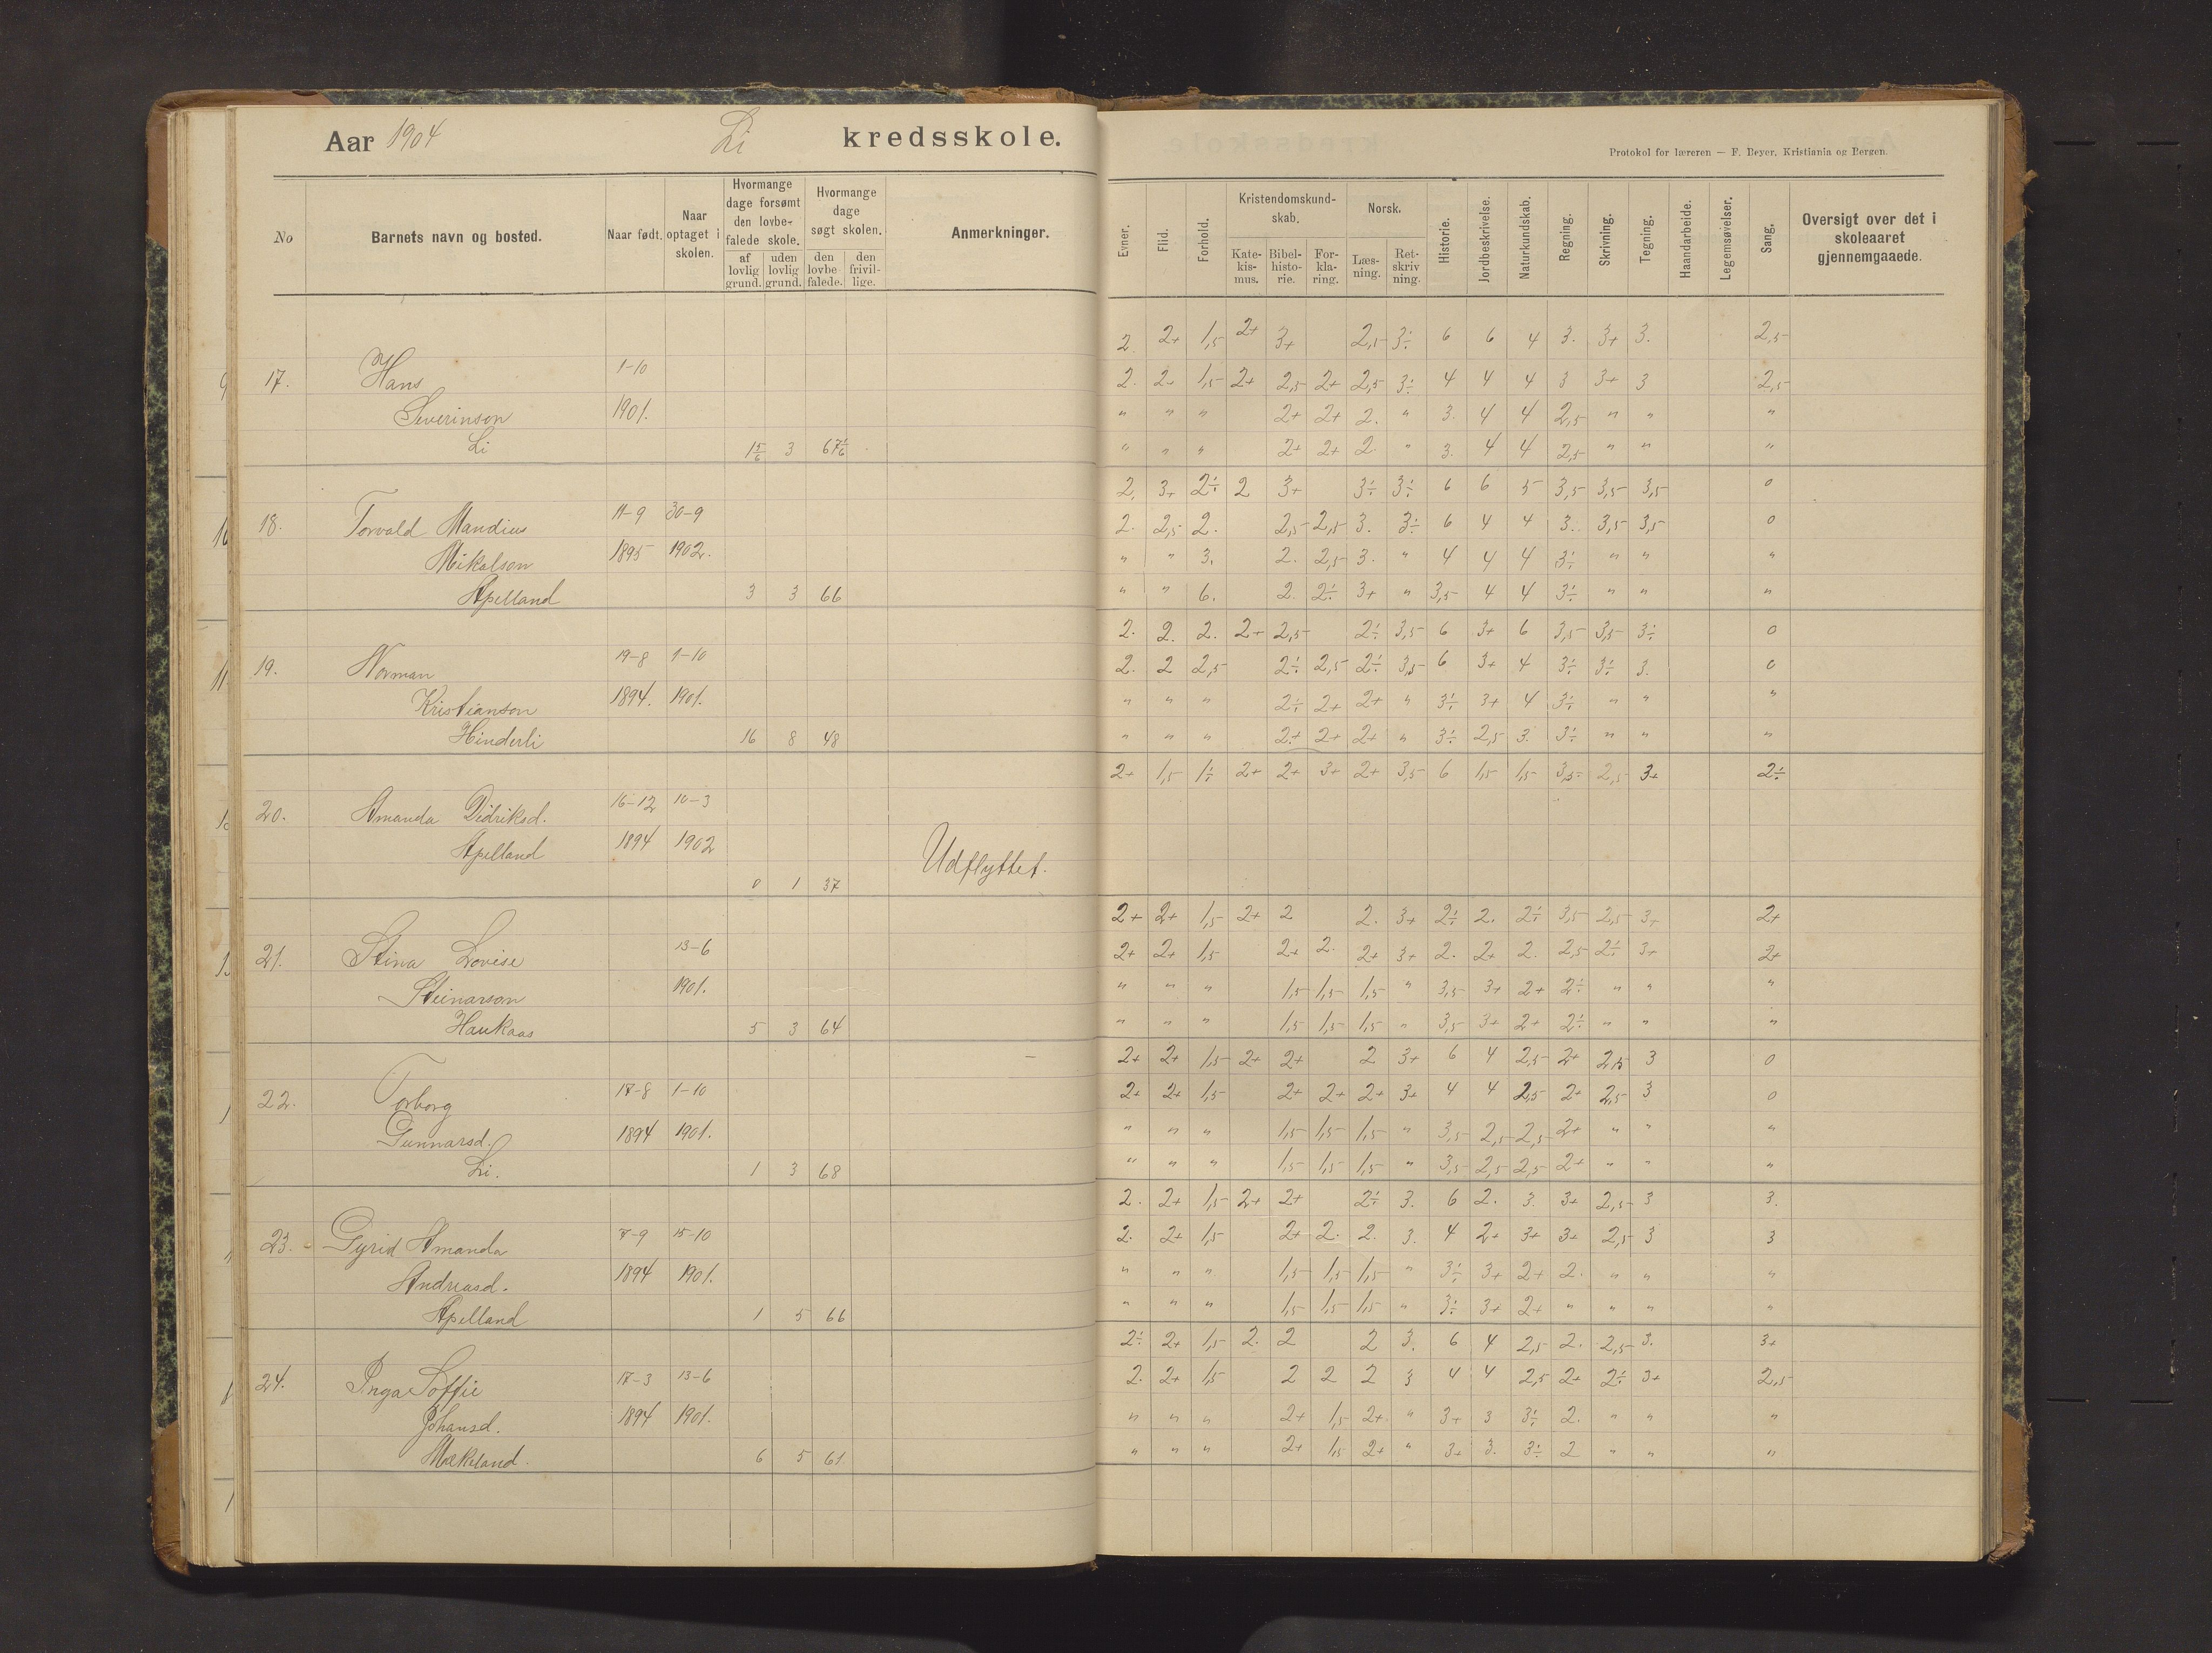 Aar 1904 Li kredsskole.
No Barnets navn og bosted. Naar født. Naar optaget i skolen. Hvormange dage forsømt den lovbefalede skole. af lovlig grund. uden lovlig grund. Hvormange dage søgt skolen. den lovbefalede. den frivillige. Anmerkninger.
17. Hans 1-10
Severinson 1901.
Li 1 5/6 3 67 1/6
18. Torvald Mandius 11-9 30-9
Mikalson 1895 1902.
Apelland 3 3 66
19. Norman 19-8 1-10
Kristianson 1894. 1901.
Hinderli 16 8 48
20. Amanda Didriksd. 16-12 10-3
Apelland 1894 1902
0 1 37 Udflyttet.
21. Stina Lovise 13-6
Steinarson 1901.
Haukaas 5 3 64
22. Torborg 17-8 1-10
Gunnarsd. 1894 1901.
Li. 1 3 68
23. Gyrid Amanda 7-9 15-10
Andreasd. 1894 1901.
Apelland 1 5 66
24. Inga Soffie 17-3 13-6
Johansd. 1894 1901.
Mækeland. 6 5 61
Protokol for læreren — F. Beyer, Kristiania og Bergen.
Evner. Flid. Forhold. Kristendomskundskab. Katekismus. Bibelhistorie. Forklaring. Norsk. Læsning. Retskrivning. Historie. Jordbeskrivelse. Naturkundskab. Regning. Skrivning. Tegning. Haandarbeide. Legemsøvelser. Sang. Oversigt over det i skoleaaret gjennemgaaede.
2. 2+ 1,5 2+ 3+ 2,5 3÷ 6 6 4 3. 3+ 3. 2,5
2. 2+ 1,5 2+ 2,5 2+ 2,5 3÷ 4 4 4 3 3+ 3 2,5
" " " 2+ 2+ 2. " 3. 4 4 2,5 " " "
" " " 2+ 2+ 2 " 3. 4 4 2,5 " " "
2. 3+ 2÷ 2 3+ 3÷ 3÷ 6 6 5 3,5 3,5 3,5 0
2. 2,5 2. 2,5 2,5 3. 3÷ 6 4 4 3. 3,5 3,5 0
" " 3. 2. 2,5 3. " 4 4 4 3÷ " " "
" " 6. 2. 2÷ 3+ " 3,5 4 4 3÷ " " "
2. 2. 2. 2+ 2,5 2÷ 3,5 6 3+ 6 3,5 3,5 3÷ 0
2. 2 2,5 2÷ 2,5 2÷ 3,5 6 3+ 4 3÷ 3÷ 3. 0
" " " 2÷ 2+ 2+ " 3÷ 3+ 4 3÷ " " "
" " " 2+ 2+ 2+ " 3÷ 2,5 3. 3÷ " " "
2+ 1,5 1÷ 2+ 2+ 3+ 2+ 3,5 6 1,5 1,5 3,5 2,5 3+ 2÷
2+ 2+ 1,5 2+ 2 2. 3+ 2÷ 2. 2÷ 3,5 2,5 3+ 2+
2+ 2+ 1,5 2+ 2. 2+ 3+ 2. 2+ 2. 2,5 2÷ 3+ 2+
" " " 1,5 1,5 1,5 " 3,5 3+ 2+ 2÷ " " "
" " " 1,5 1,5 1,5 " 3,5 3+ 2+ 2÷ " " "
2+ 2+ 1,5 2+ 2+ 2 3+ 6 4 2,5 2+ 2,5 3 0
2+ 2+ 1,5 2+ 2+ 2+ 3+ 4 4 2,5 2+ 2,5 3 0
" " " 1,5 1,5 1,5 " 3,5 2,5 2,5 2+ " " "
" " " 1,5 1,5 1,5 " 3,5 2,5 2,5 2+ " " "
2. 2+ 1,5 2+ 2+ 2÷ 3. 6 2. 3. 3+ 2,5 3 3.
2. 2+ 1,5 2+ 2. 2. 3. 4 2+ 3+ 3+ 2,5 3 3
" " " 1,5 1,5 1,5 " 3÷ 3+ 2+ 2. " " "
" " " 1,5 1,5 1,5 " 3÷ 3+ 2+ " " " "
2÷ 2+ 1,5 2. 2 2 3. 6 4 2,5 2. 2,5 3. 3+
2. 2+ 1,5 2 2 2 3 4 4 2,5 2+ 2÷ 3+ 2,5
" " " 2+ 1,5 2+ " 3+ 3 3÷ 2. " " "
" " " 2+ 1,5 2+ " 3+ 3. 3÷ 2 " " "